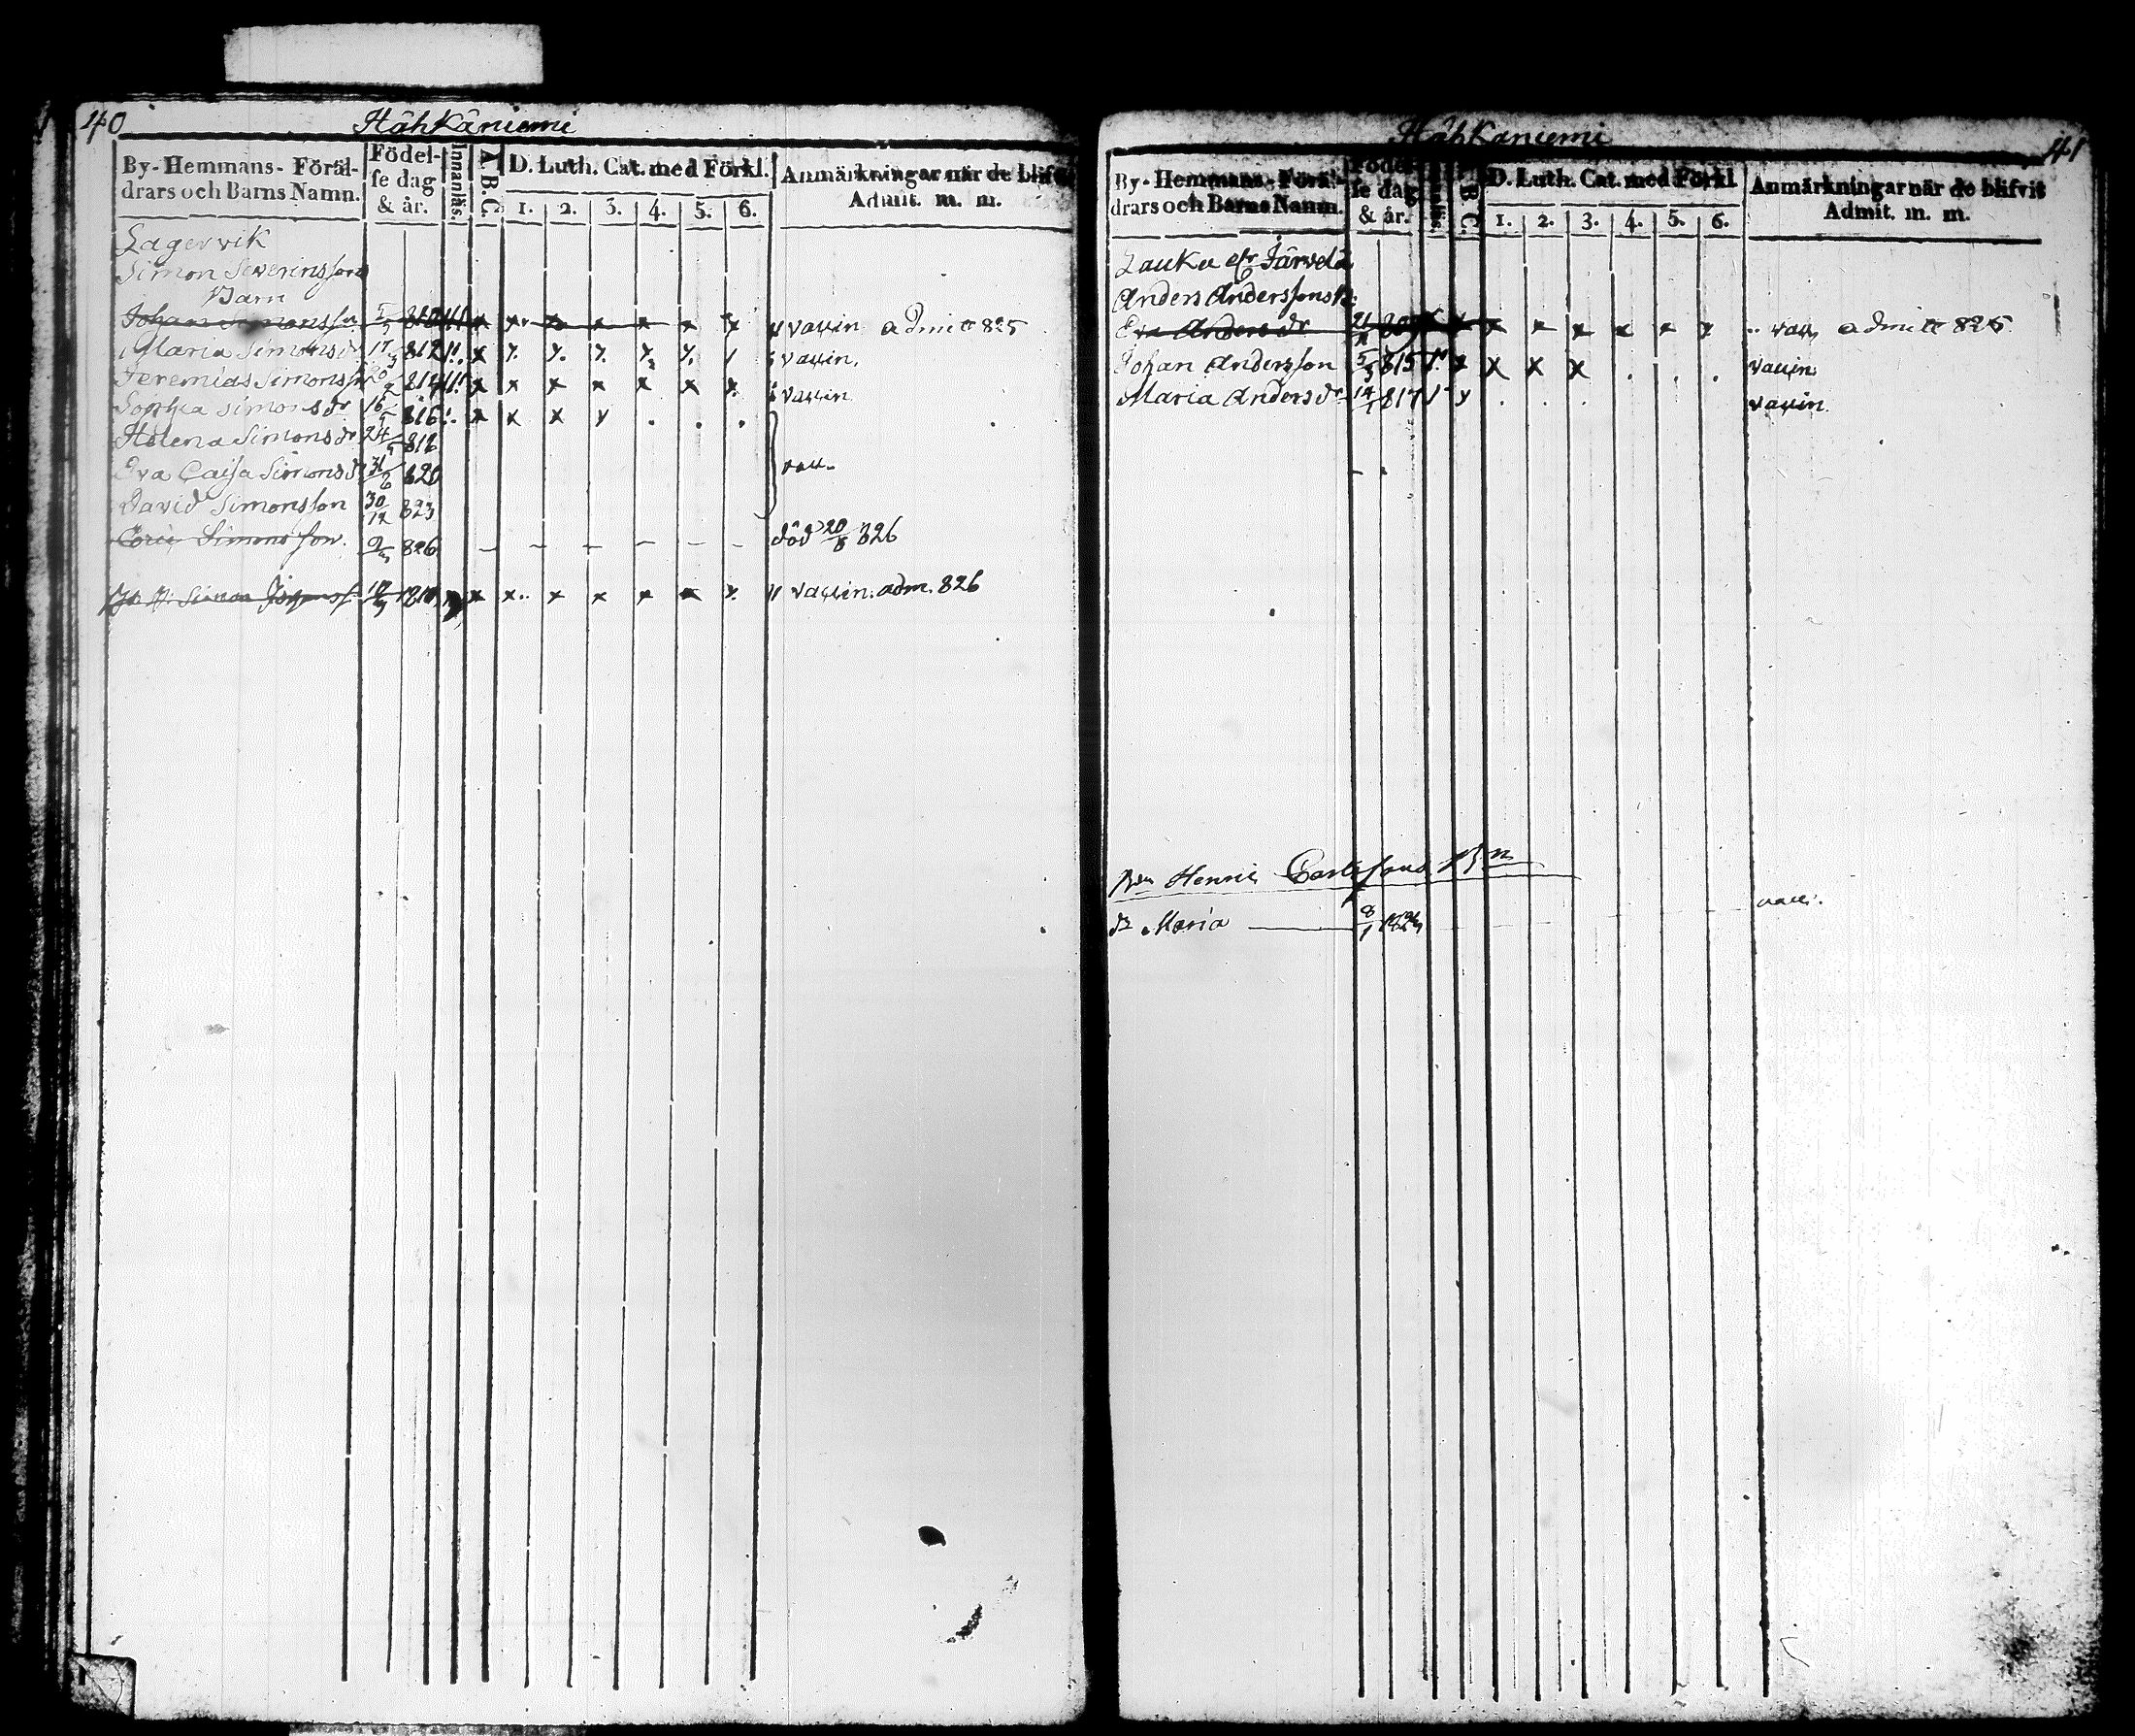 40
HähKäniemi
By- Hemmans- Föräl-
drars och Barns Namn.
Födel-
se dag
& år.
Innanläs.
A.B.C.
D. Luth. Cat. med Förkl.
1. 2. 3. 4. 5. 6.
Anmärkningar när de blif
Admit. m. m.
Lagervik
Simon Severinsson
Barn
Johan Simonsson 810 x x x x x x x vaccin admitt 825
Maria Simonsdr 17 812 x vaccin.
Jeremias Simonsson 20 814 x x x x x x x vaccin
Sophia Simonsdr 16 816 x x x y . . .
Helena Simonsdr 24 818
Eva Cajsa Simonsd 31 820 vacc.
David Simonsson 30/12 823
Simonsson. 9 826 – – – – – – död 20/8 826
Simon 18 x x x x x x vaccin. adm. 826
41
HähKäniemi
By- Hemmans- Föräl-
drars och Barns Namn.
Födel-
se dag
& år.
B C.
D. Luth. Cat. med Förkl.
1. 2. 3. 4. 5. 6.
Anmärkningar när de blifvit
Admit. m. m.
LauKa Järvelä
Anders Anderssons B:
Eva Andersdr 21 x x x x x vacc admitt 825
Johan Andersson 5 815 x x x x . . . vaccin
Maria Andersdr 14 817 y . . . vaccin.
Henric
Maria 8/1 vacc.